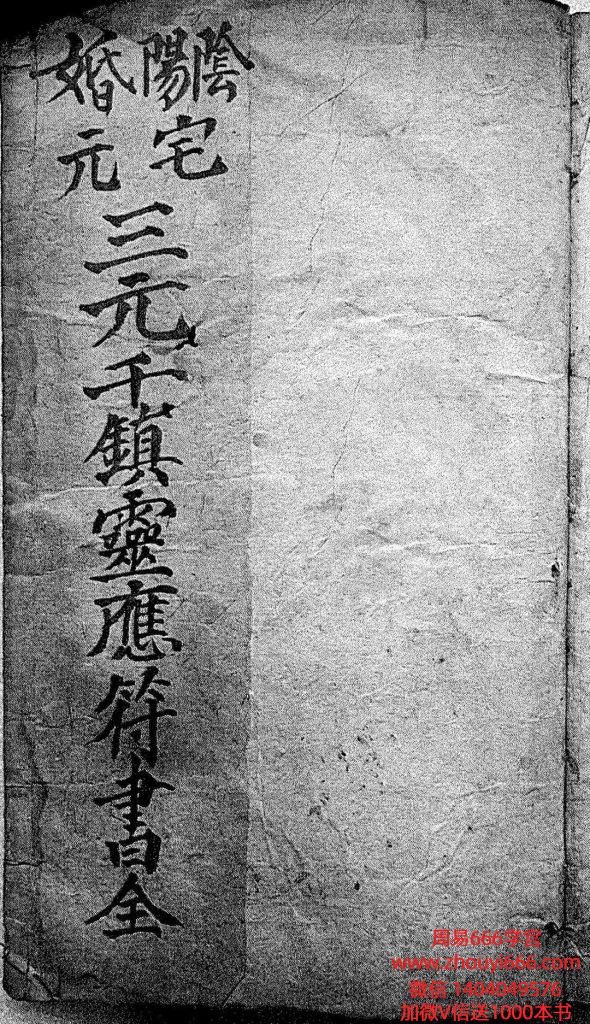 陰陽宅
婚元
三元千鎮靈應符書全
周易666学宫
www.zhouyi666.com
微信 1404049576
加微V信送1000本书